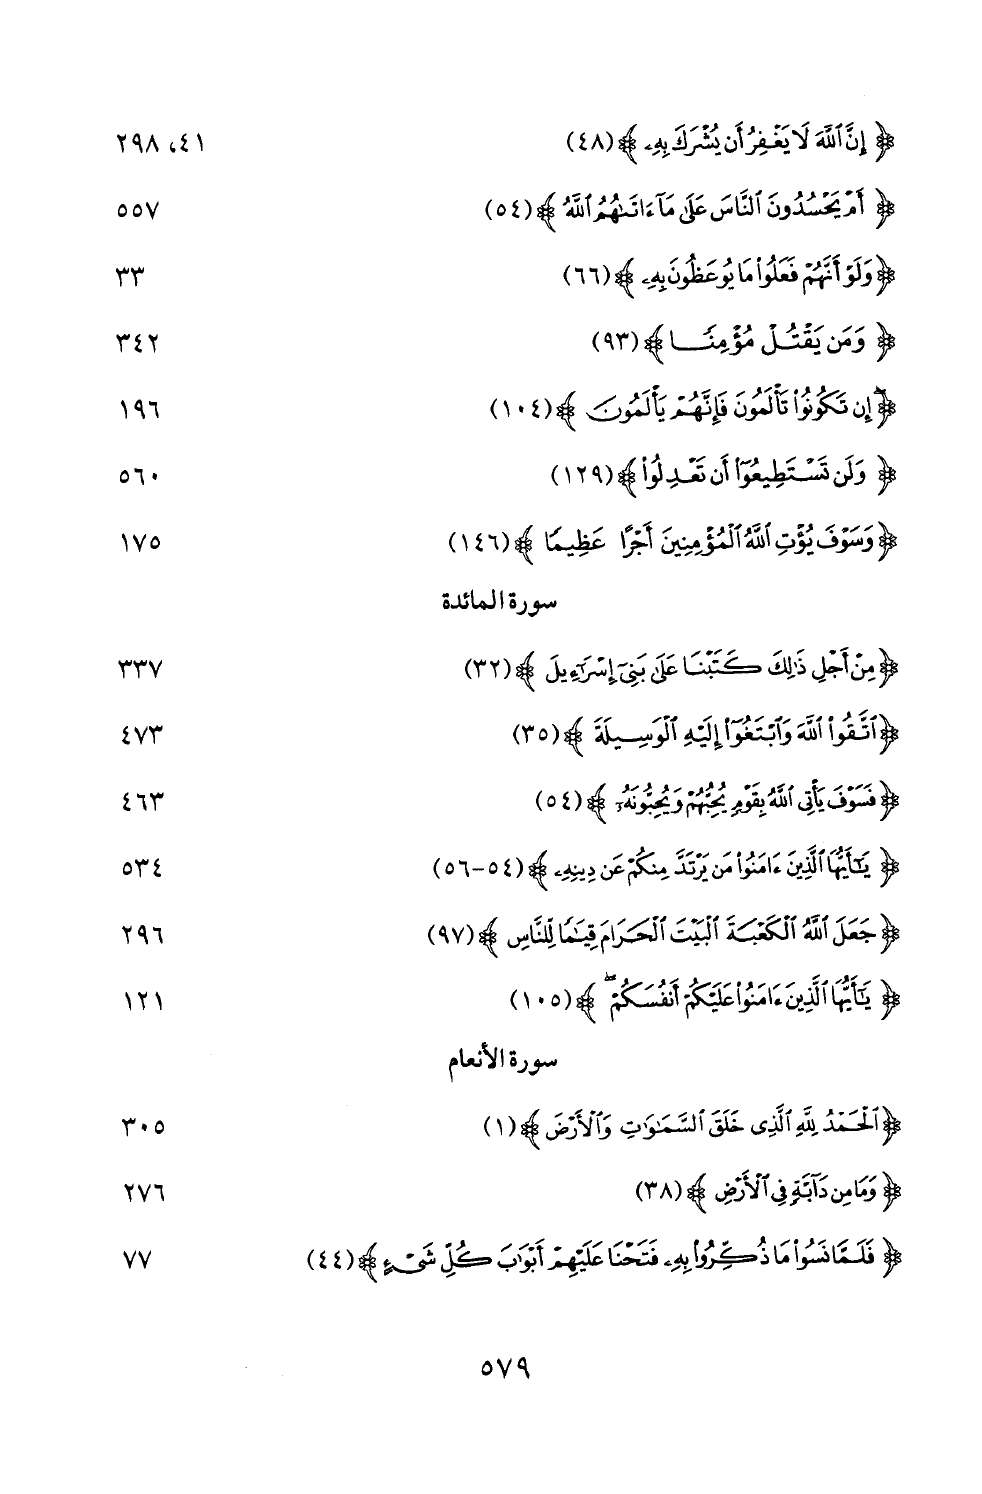 ﴿ إِنَّ ٱللَّهَ لَا يَغْفِرُ أَن يُشْرَكَ بِهِۦ ﴾ (٤٨) ٤١، ٢٩٨
﴿ أَمْ يَحْسُدُونَ ٱلنَّاسَ عَلَىٰ مَآ ءَاتَىٰهُمُ ٱللَّهُ ﴾ (٥٤) ٥٥٧
﴿ وَلَوْ أَنَّهُمْ فَعَلُوا۟ مَا يُوعَظُونَ بِهِۦ ﴾ (٦٦) ٣٣
﴿ وَمَن يَقْتُلْ مُؤْمِنًا ﴾ (٩٣) ٣٤٢
﴿ إِن تَكُونُوا۟ تَأْلَمُونَ فَإِنَّهُمْ يَأْلَمُونَ ﴾ (١٠٤) ١٩٦
﴿ وَلَن تَسْتَطِيعُوٓا۟ أَن تَعْدِلُوا۟ ﴾ (١٢٩) ٥٦٠
﴿ وَسَوْفَ يُؤْتِ ٱللَّهُ ٱلْمُؤْمِنِينَ أَجْرًا عَظِيمًا ﴾ (١٤٦) ١٧٥
سورة المائدة
﴿ مِنْ أَجْلِ ذَٰلِكَ كَتَبْنَا عَلَىٰ بَنِىٓ إِسْرَٰٓءِيلَ ﴾ (٣٢) ٣٣٧
﴿ ٱتَّقُوا۟ ٱللَّهَ وَٱبْتَغُوٓا۟ إِلَيْهِ ٱلْوَسِيلَةَ ﴾ (٣٥) ٤٧٣
﴿ فَسَوْفَ يَأْتِى ٱللَّهُ بِقَوْمٍ يُحِبُّهُمْ وَيُحِبُّونَهُۥٓ ﴾ (٥٤) ٤٦٣
﴿ يَٰٓأَيُّهَا ٱلَّذِينَ ءَامَنُوا۟ مَن يَرْتَدَّ مِنكُمْ عَن دِينِهِۦ ﴾ (٥٤-٥٦) ٥٣٤
﴿ جَعَلَ ٱللَّهُ ٱلْكَعْبَةَ ٱلْبَيْتَ ٱلْحَرَامَ قِيَٰمًا لِّلنَّاسِ ﴾ (٩٧) ٢٩٦
﴿ يَٰٓأَيُّهَا ٱلَّذِينَ ءَامَنُوا۟ عَلَيْكُمْ أَنفُسَكُمْ ۖ ﴾ (١٠٥) ١٢١
سورة الأنعام
﴿ ٱلْحَمْدُ لِلَّهِ ٱلَّذِى خَلَقَ ٱلسَّمَٰوَٰتِ وَٱلْأَرْضَ ﴾ (١) ٣٠٥
﴿ وَمَا مِن دَآبَّةٍ فِى ٱلْأَرْضِ ﴾ (٣٨) ٢٧٦
﴿ فَلَمَّا نَسُوا۟ مَا ذُكِّرُوا۟ بِهِۦ فَتَحْنَا عَلَيْهِمْ أَبْوَٰبَ كُلِّ شَىْءٍ ﴾ (٤٤) ٧٧
٥٧٩